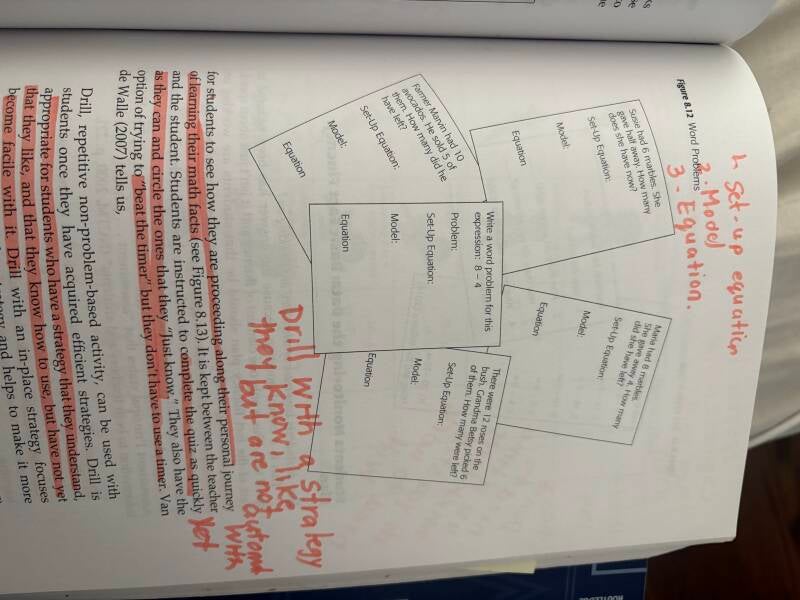 1. Set-up equation
2. Model
3. Equation.
Figure 8.12 Word Problems
Susie had 6 marbles. She
gave half away. How many
does she have now?
Set-Up Equation:
Model:
Equation
Maria had 8 marbles.
She gave away 4. How many
did she have left?
Set-Up Equation:
Model:
Equation
Farmer Marvin had 10
avocados. He sold 5 of
them. How many did he
have left?
Set-Up Equation:
Model:
Equation
Write a word problem for this
expression: 8 – 4
Problem:
Set-Up Equation:
Model:
Equation
There were 12 roses on the
bush. Grandma Betsy picked 6
of them. How many were left?
Set-Up Equation:
Model:
Equation
Drill with a strategy
they know, like
but are not
with
yet
for students to see how they are proceeding along their personal journey
of learning their math facts (see Figure 8.12). It is kept between the teacher
and the student. Students are instructed to complete the quiz as quickly
as they can and circle the ones that they "just know." They also have the
option of trying to "beat the timer" but they don't have to use a timer. Van
de Walle (2007) tells us,
Drill, repetitive non-problem-based activity, can be used with
students once they have acquired efficient strategies. Drill is
appropriate for students who have a strategy that they understand,
that they like, and that they know how to use, but have not yet
become facile with it. Drill with an in-place strategy focuses
and helps to make it more
ROUTLEDGE